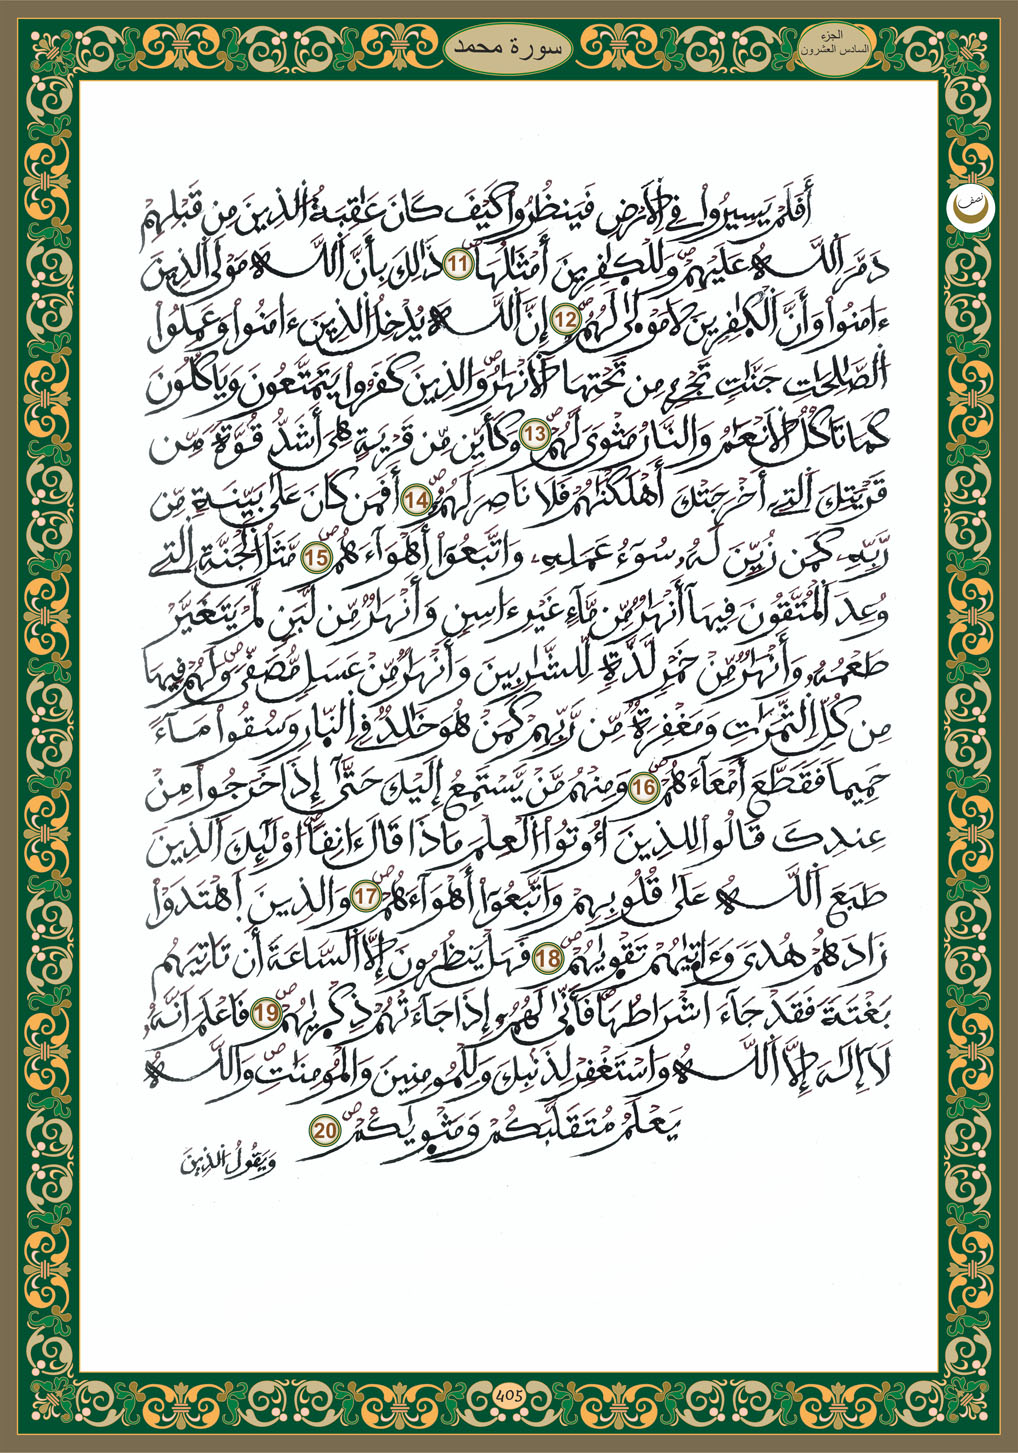 سورة محمد
الجزء
السادس العشرون
نصف
أَفَلَمْ يَسِيرُوا۟ فِي اِ۬لَارْضِ فَيَنظُرُوا۟ كَيْفَ كَانَ عَٰقِبَةُ اُ۬لذِينَ مِن قَبْلِهِمْ
دَمَّرَ اَ۬للَّهُ عَلَيْهِمْ وَلِلْكٰ۪فِرِينَ أَمْثَٰلُهَا 11 ذَٰلِكَ بِأَنَّ اَ۬للَّهَ مَوْلَى اَ۬لذِينَ
ءَامَنُوا۟ وَأَنَّ اَ۬لْكٰ۪فِرِينَ لَا مَوْل۪ىٰ لَهُمُۥ 12 إِنَّ اَ۬للَّهَ يُدْخِلُ اُ۬لذِينَ ءَامَنُوا۟ وَعَمِلُوا۟
اُ۬لصَّٰلِحَٰتِ جَنَّٰتٖ تَجْرِے مِن تَحْتِهَا اَ۬لَانْهَٰرُ وَالذِينَ كَفَرُوا۟ يَتَمَتَّعُونَ وَيَاكُلُونَ
كَمَا تَاكُلُ اُ۬لَانْعَٰمُ وَالنَّارُ مَثْوىٗ لَّهُمْ 13 وَكَأَيِّن مِّن قَرْيَةٍ هِيَ أَشَدُّ قُوَّةٗ مِّن
قَرْيَتِكَ اَ۬لتِےٓ أَخْرَجَتْكَ أَهْلَكْنَٰهُمْ فَلَا نَاصِرَ لَهُمُۥٓ 14 أَفَمَن كَانَ عَلَىٰ بَيِّنَةٖ مِّن
رَّبِّهِۦ كَمَن زُيِّنَ لَهُۥ سُوٓءُ عَمَلِهِۦ وَاتَّبَعُوٓا۟ أَهْوَآءَهُم 15 مَّثَلُ اُ۬لْجَنَّةِ اِ۬لتِے
وُعِدَ اَ۬لْمُتَّقُونَ فِيهَآ أَنْهَٰرٞ مِّن مَّآءٍ غَيْرِ ءَاسِنٖ وَأَنْهَٰرٞ مِّن لَّبَنٖ لَّمْ يَتَغَيَّرْ
طَعْمُهُۥ وَأَنْهَٰرٞ مِّنْ خَمْرٖ لَّذَّةٖ لِّلشَّٰرِبِينَ وَأَنْهَٰرٞ مِّنْ عَسَلٖ مُّصَفّىٗ وَلَهُمْ فِيهَا
مِن كُلِّ اِ۬لثَّمَرَٰتِ وَمَغْفِرَةٞ مِّن رَّبِّهِمْ كَمَنْ هُوَ خَٰلِدٞ فِي اِ۬لنّ۪ارِ وَسُقُوا۟ مَآءً
حَمِيماٗ فَقَطَّعَ أَمْعَآءَهُمْ 16 وَمِنْهُم مَّنْ يَّسْتَمِعُ إِلَيْكَ حَتَّىٰٓ إِذَا خَرَجُوا۟ مِنْ
عِندِكَ قَالُوا۟ لِلذِينَ أُوتُوا۟ اُ۬لْعِلْمَ مَاذَا قَالَ ءَانِفاً ا۟وْلَٰٓئِكَ اَ۬لذِينَ
طَبَعَ اَ۬للَّهُ عَلَىٰ قُلُوبِهِمْ وَاتَّبَعُوٓا۟ أَهْوَآءَهُمْ 17 وَالذِينَ اَ۪هْتَدَوْا۟
زَادَهُمْ هُدىٗ وَءَات۪يٰهُمْ تَقْو۪يٰهُمْ 18 فَهَلْ يَنظُرُونَ إِلَّا اَ۬لسَّاعَةَ أَن تَاتِيَهُم
بَغْتَةٗ فَقَدْ جَآءَ اشْرَاطُهَا فَأَنّ۪ىٰ لَهُمُۥٓ إِذَا جَآءَتْهُمْ ذِكْر۪يٰهُمْ 19 فَاعْلَمَ اَنَّهُۥ
لَآ إِلَٰهَ إِلَّا اَ۬للَّهُ وَاسْتَغْفِرْ لِذَنۢبِكَ وَلِلْمُومِنِينَ وَالْمُومِنَٰتِ وَاللَّهُ
يَعْلَمُ مُتَقَلَّبَكُمْ وَمَثْو۪يٰكُمْ 20
وَيَقُولُ اُ۬لذِينَ
405